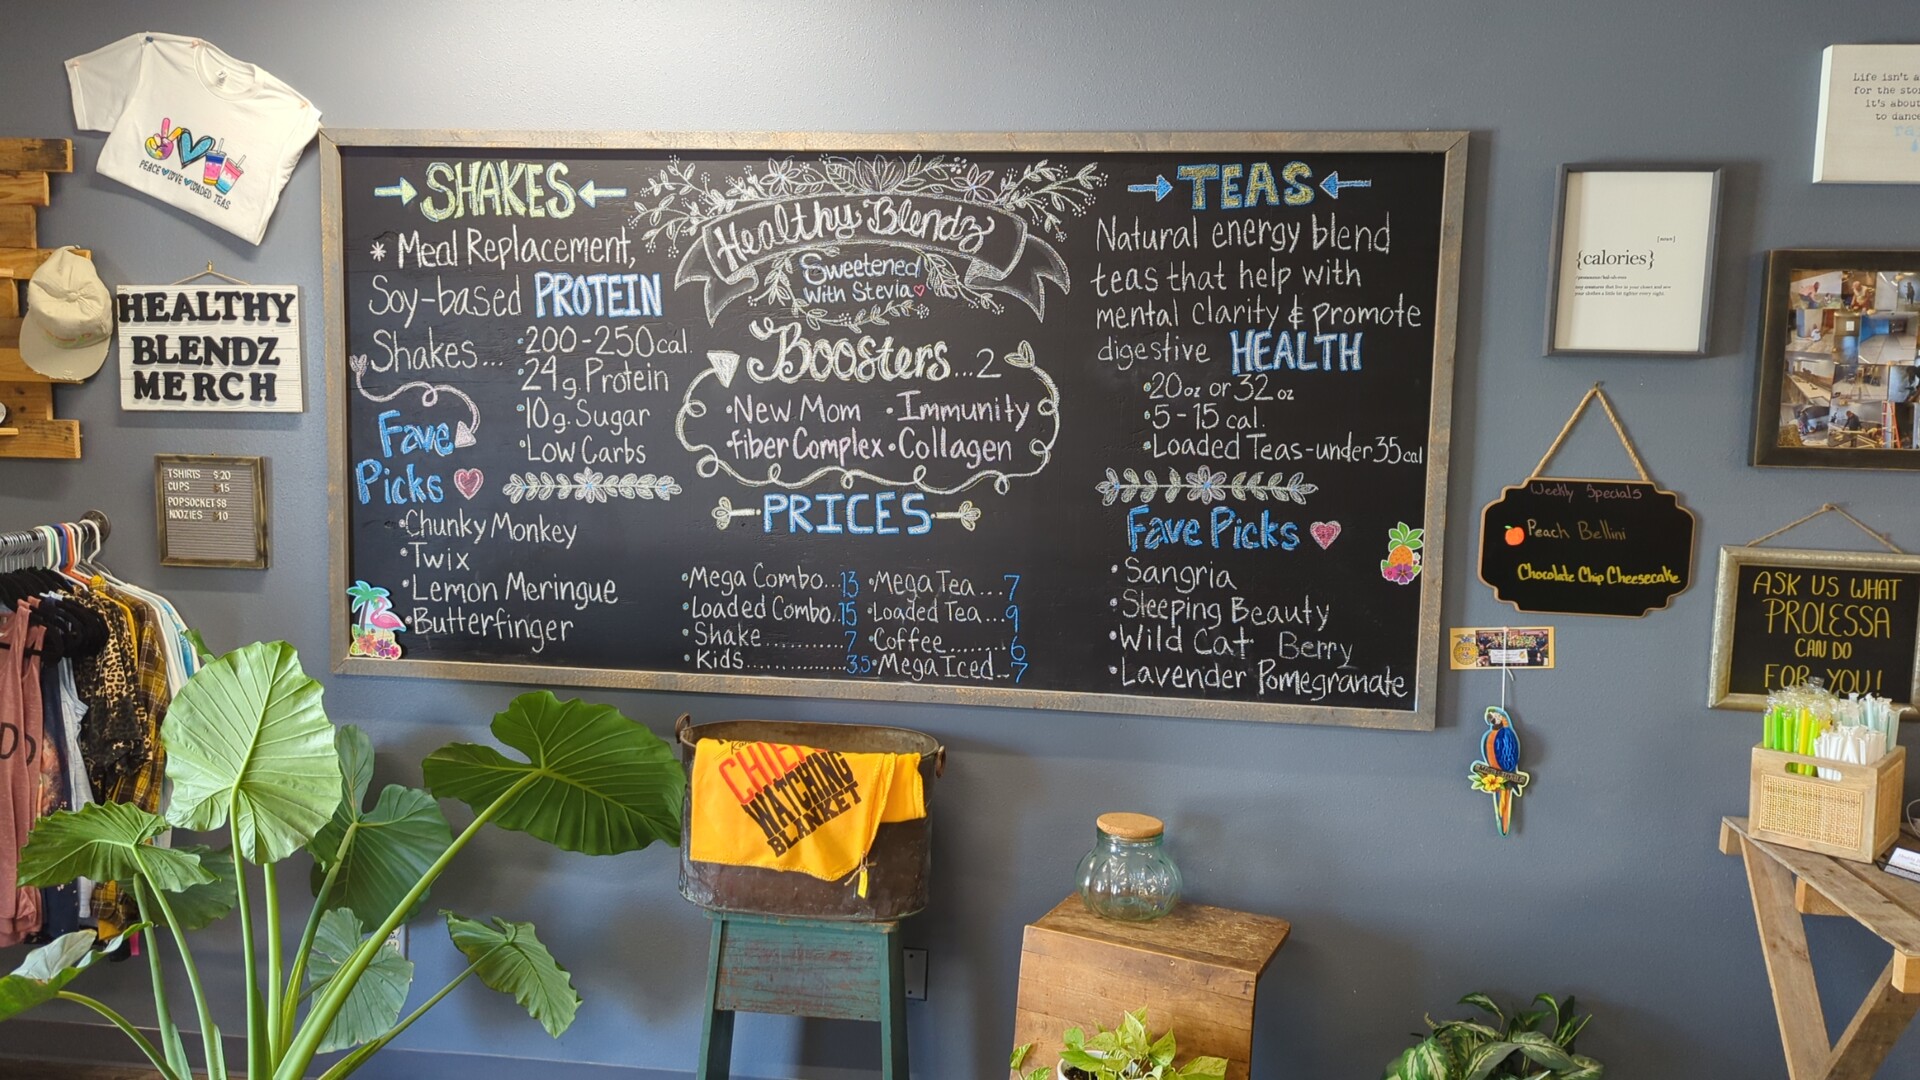 PEACE LOVE LOADED TEAS
HEALTHY
BLENDZ
MERCH
TSHIRTS $20
CUPS $15
POPSOCKETS $8
KOOZIES $10
SHAKES
* Meal Replacement,
Soy-based PROTEIN
Shakes...
•200-250 cal.
•24g. Protein
•10g. Sugar
•Low Carbs
Fave
Picks
•Chunky Monkey
•Twix
•Lemon Meringue
•Butterfinger
Healthy Blendz
Sweetened
with Stevia
Boosters...2
•New Mom •Immunity
•fiber Complex •Collagen
PRICES
•Mega Combo...13 •Mega Tea...7
•Loaded Combo..15 •Loaded Tea...9
•Shake...........7 •Coffee.......6
•Kids.............3.5 •Mega Iced...7
TEAS
Natural energy blend
teas that help with
mental clarity & promote
digestive HEALTH
•20oz or 32oz
•5-15 cal.
•Loaded Teas-under 35cal
Fave Picks
•Sangria
•Sleeping Beauty
•Wild Cat Berry
•Lavender Pomegranate
CHIEFS
WATCHING
BLANKET
Life isn't a
for the sto
it's about
to dance
{calories}
[noun]
Weekly Specials
Peach Bellini
Chocolate Chip Cheesecake
ASK US WHAT
PROLESSA
CAN DO
FOR YOU!